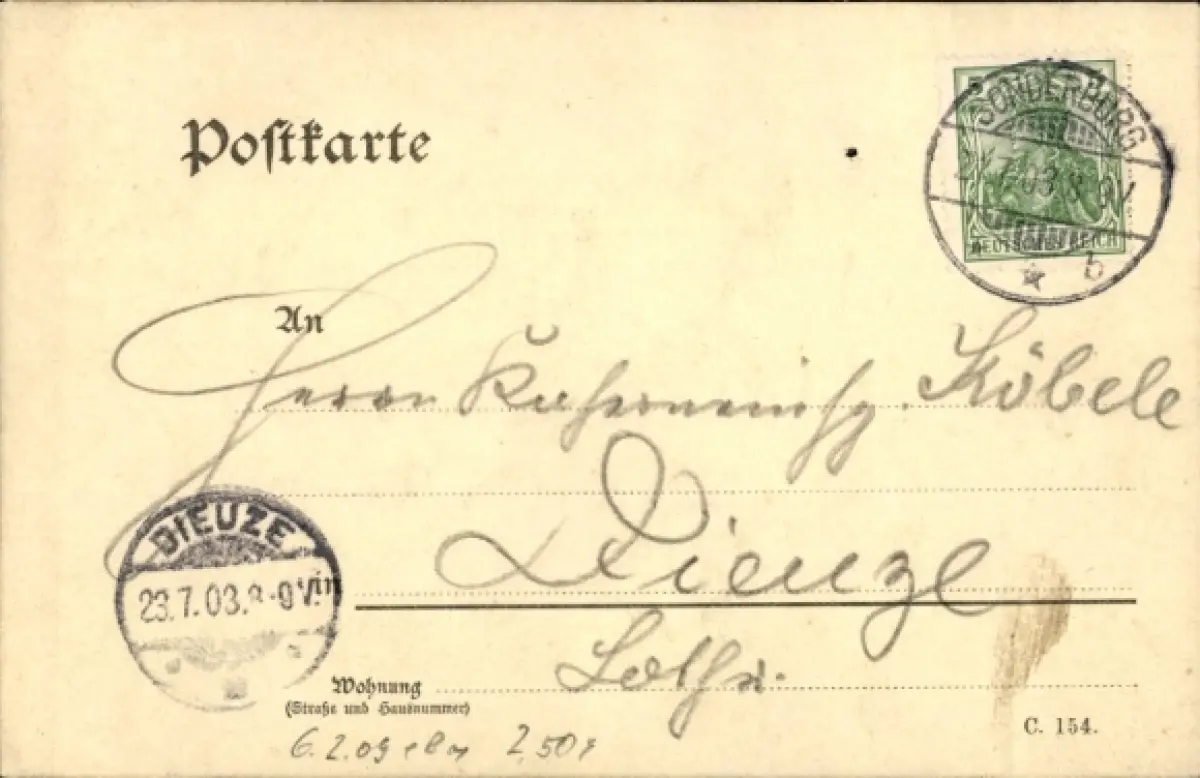 Postkarte
SONDERBURG
7.03.8-9V
DEUTSCHES REICH
b
An
Herrn Kaserneninsp. Köbele
Dieuze
Lothr.
DIEUZE
23.7.03.8-9V.
Wohnung
(Straße und Hausnummer)
C. 154.
6.2.09 2,50